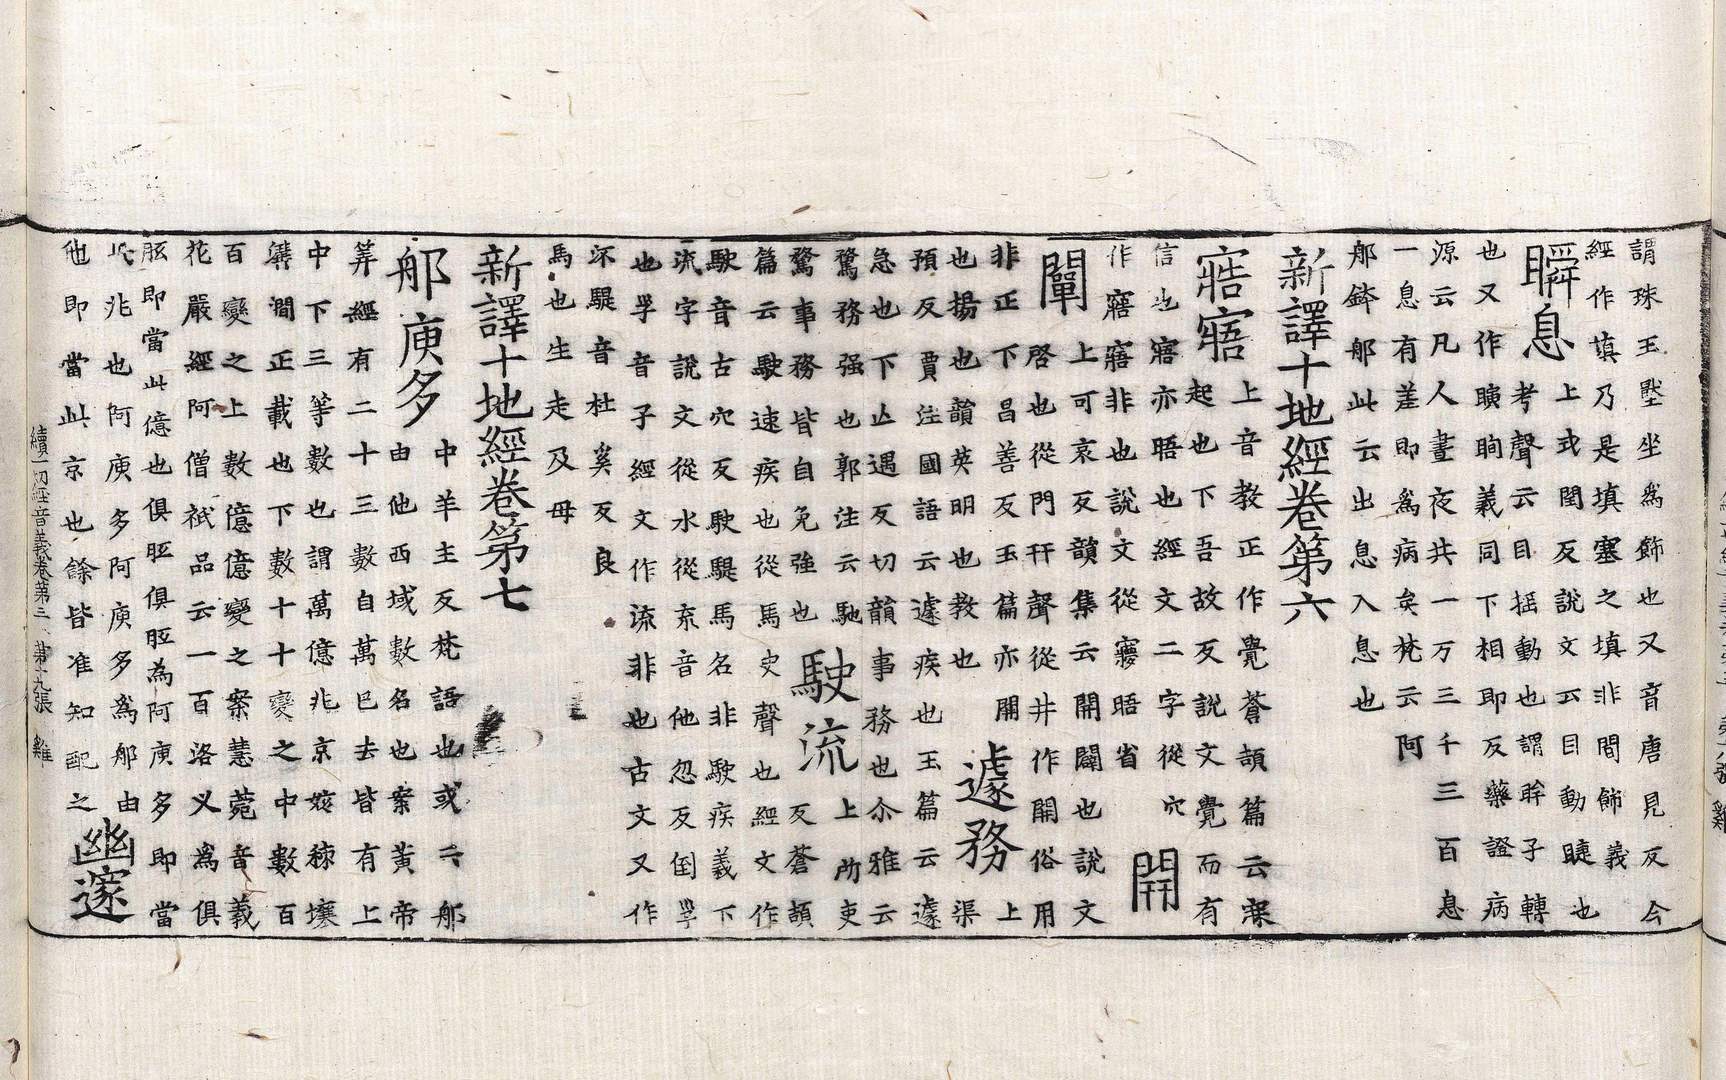 謂珠玉壓坐爲飾也又音唐見反今
經作填乃是填塞之填非間飾義也
瞬息上式閏反說文云目動睫也
考聲云目揺動也謂眸子轉
也又作瞚眴義同下相即反藥證病
源云凡人晝夜共一万三千三百息
一息有差即爲病矣梵云阿
那鉢那此云出息入息也
新譯十地經卷第六
寤寤上音教正作覺蒼頡篇云寐
起也下吾故反說文覺而有
信也寤亦晤也經文二字從穴
作寤寤非也說文從㝱晤省
開闡上可哀反韻集云開闢也說文
啓也從門幵聲從井作開俗用
非正下昌善反玉篇亦開上
也揚也韻英明也教也遽務渠
預反賈注國語云遽疾也玉篇云遽
急也下亡遇反切韻事務也尒雅云
騖務强也郭注云馳騖事務皆自免強也
駛流上所吏反蒼頡
篇云駛速疾也從馬史聲也經文作
駃音古穴反駃騠馬名非駛疾義下
流字說文從水從㐬音他忽反倒孚
也孚音子經文作流非也古文又作
坏騠音杜奚反良
馬也生走及母
新譯十地經卷第七
那庾多中羊主反梵語也或云那
由他西域數名也案黃帝
筭經有二十三數自萬已去皆有上
中下三等數也謂萬億兆京姟秭壤
溝澗正載也下數十十變之中數百
百變之上數億億變之案慧菀音義
花嚴經阿僧祇品云一百洛义爲俱
胝即當此億也俱胝俱胝為阿庾多即當
此兆也阿庾多阿庾多爲那由
他即當此京也餘皆准知配之幽邃
續一切經音義卷第三 第十九張 雞